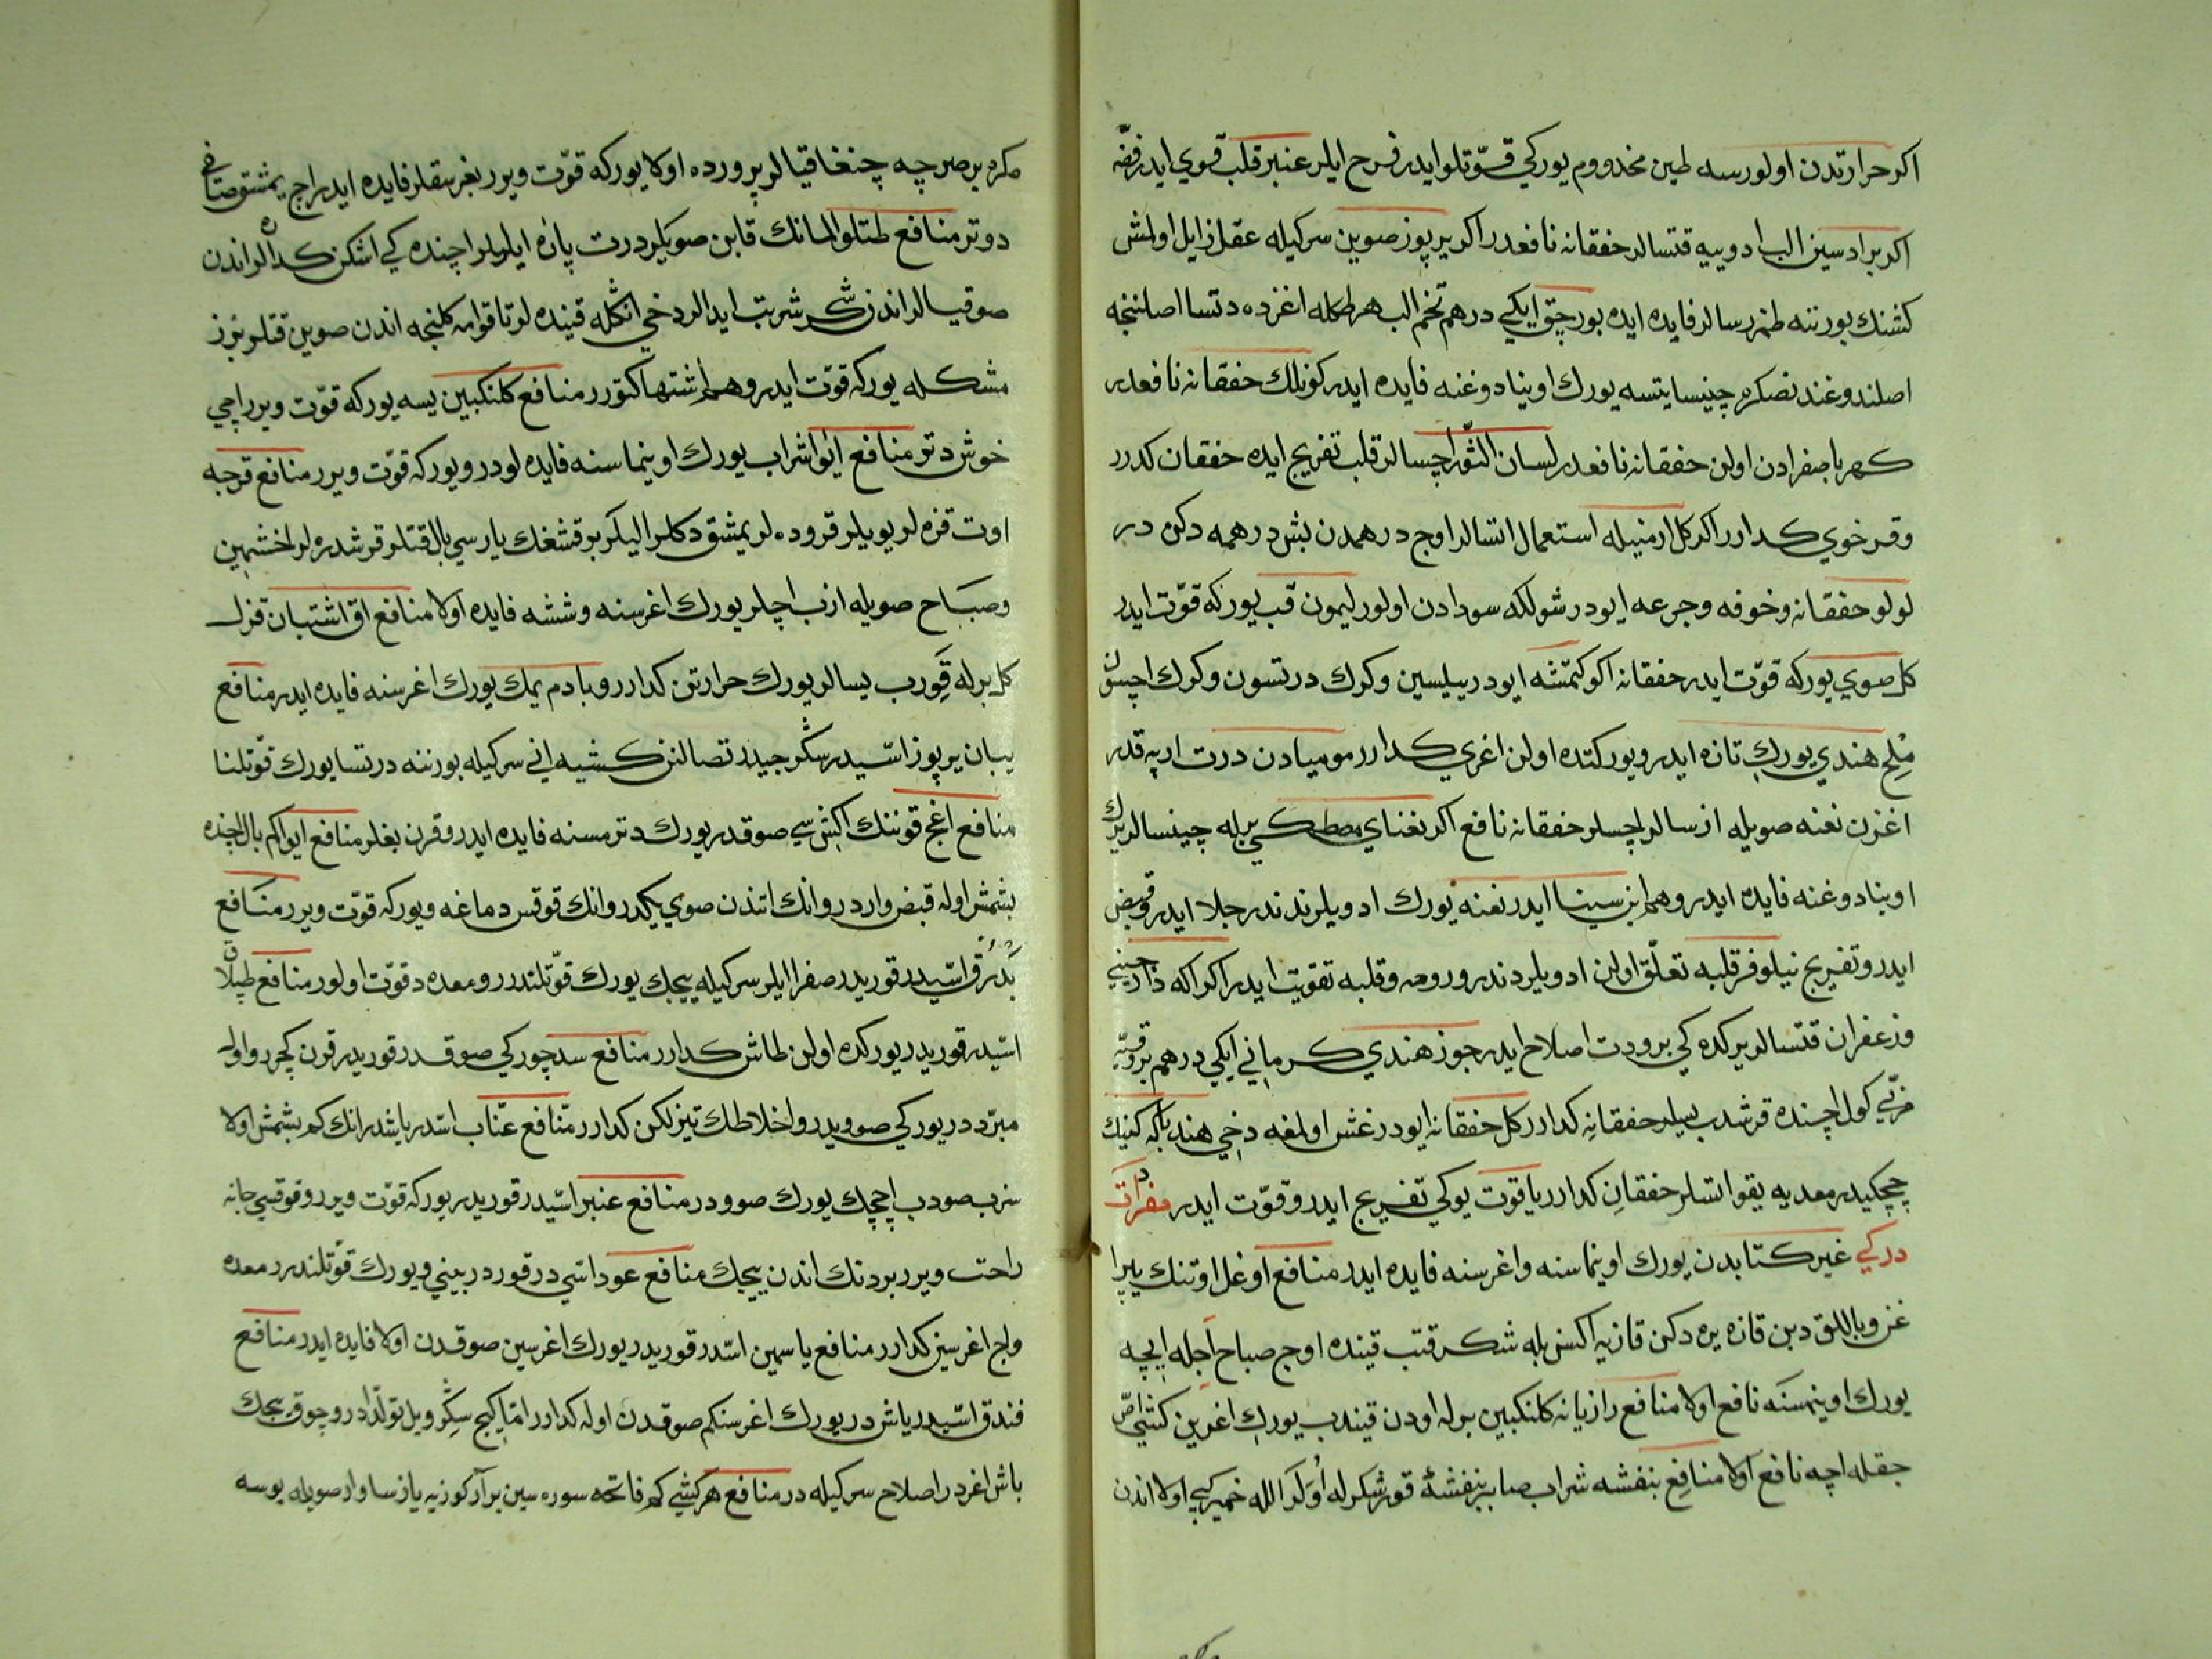 اكر حرارتدن اولورسه طين مخدووم يوركي قوّتلو ايدر فرح ايلر عنبر قلب قوي ايدر فضّه
اكر برادسين الب ادويه قتسالر خفقانه نافعدر اكر يرپوز صوين سركيله عقل زايل اولمش
كشنك بورننه طمزرسالر فايده ايده بورچق ايكي درهم تخم الب هر طعامله اغزده دتسا اصلننجه
اصلندوغندنصكره چينسا يتسه يورك اوينادوغنه فايده ايدر كونلك خفقانه نافعدر
كهربا صفرادن اولن خفقانه نافعدر لسان الثّور اچسالر قلب تفريح ايده خفقان كدرر
وقرخوي كدارر اكر كل ارمنيله استعمال اتسالر اوچ درهمدن بش درهمه دكن در
لولو خفقانه وخوفه وجرعه ايودر شولكه سودادن اولور ليمون قب يوركه قوّت ايدر
كل صوي يوركه قوّت ايدر خفقانه اكوكتمشه ايودر يبليسين وكرك درتسون وكرك اچسون
ملح هندي يورك تازه ايدر ويوركتده اولن اغري كدارر موميادن درت اربه قدر
اغزن نعنه صويله ازسالر اچسلر خفقانه نافع اكر نعناي مصطكي برله چينسالر يورك
اوينادوغنه فايده ايدر وهم ابن سينا ايدر نعنه يورك ادويلرندندر جلا ايدر وقبض
ايدر وتفريح نيلوفر قلبه تعلّق اولن ادويلردندر ورومه وقلبه تقويت ايدر اكر اكه دارچيني
وزعفران قتسالر يركده كي برودت اصلاح ايدر جوز هندي كرماني ايكي درهم بروقيّه
مربّي كول اچنده قرشدب يسلر خفقانه كدارر كل خفقانه ايودر غش اولمغه دخي هندباكه كنيك
چچكيدر معديه يقو اتسلر خفقان كدارر ياقوت يوكي تفريح ايدر وقوّت ايدر مفردات
دركي غير كتابدن يورك اوينماسنه واغرسنه فايده ايدر منافع اوغل اوتنك يپرا
غن وباللق دبن قازه يره دكن قازيه اكسن بله شكر قتب قينده اوچ صباح اجله ايچه
يورك اوينمسنه نافع اولا منافع رازيانه كلنكبين برله اودن قيندب يورك اغوين كشي اصّ
جقله اچه نافع اولا منافع بنفشه شراب صابر بنفشهٔ قور شكرله اوكر الله خمير كبي اولا اندن
مكره بر صرچه چنغا قيالر پرورده اولا يوركه قوّت ويرر بغرسقلر فايده ايدر اچ يمشق صتاغي
دوتر منافع طتلو المانك قابن صويلر درت پاره ايلويلر اچنده كي اشكن كداره لر اندن
صوقيالر اندن شكر شربت ايدالر دخي انكله قينده لر تا قوامه كلنجه اندن صوين قتلر بوز
مشكله يوركه قوّت ايدر وهم اشتها كتورر منافع كلنكبين يسه يوركه قوّت ويرر اچي
خوش دتر منافع ايوا شراب يورك اوينماسنه فايده لودر ويوركه قوّت ويرر منافع قرجه
اوت قزه لر يويلر قروده لر يمشق دكلر اليكر بر قشغك ياريسي بال قتلر قرشدره لر اخشمين
وصباح صويله ازب اچلر يورك اغرسنه وششه فايده اولا منافع اق اشتبان قزل
كل برله قورب يسالر يورك حرارتن كدارر وبادم يمك يورك اغرسنه فايده ايدر منافع
يبان يرپوز اسّيدر سكر جيدر تصالنن كشيه اني سركيله بورننه درتسا يورك قوّتلنا
منافع اغج قوننك اكش سي صوقدر يورك دترمسنه فايده ايدر وقرن بغلر منافع ايوا كم بال اچنده
بشمش اوله قبض واردر وانك اتندن صوي يكدر وانك قوقس دماغه ويوركه قوّت ويرر منافع
بدرق اسّيدر قوريدر صفرا ايلر سركيله ييجك يورك قوّتلندرر ومعده ده قوّت اولور منافع طپلاق
اسّيدر قوريدر يوركده اولن طاش كدارر منافع سدچوركي صوقدر قوريدر قرن كچرر واوله
مبرّد در يوركي صوويدر واخلاطك تيزلكن كدارر منافع عنّاب اسّدر ياشدر انك كم بشمش اولا
سزب صودب اچچك يورك صوودر منافع عنبر اسّيدر قوريدر يوركه قوّت ويرر وقوقسي جانه
راحت ويرر بردنك اندن ييجك منافع عود اسّي در قوردر بيني ويورك قوّتلندرر معده
واچ اغرسين كدارر منافع ياسمين اسّدر قوريدر يورك اغرسين صوقدن اولا فايده ايدر منافع
فندق اسّيدر ياش در يورك اغرسنكم صوقدن اوله كدارر امّا كيچ سكر ويل تولّد ادر وچوق ييجك
باش اغردر اصلاح سركيله در منافع هر كشي كم فاتحه سوره سين بر آن كوزيه يازسا وار صويله يوسه